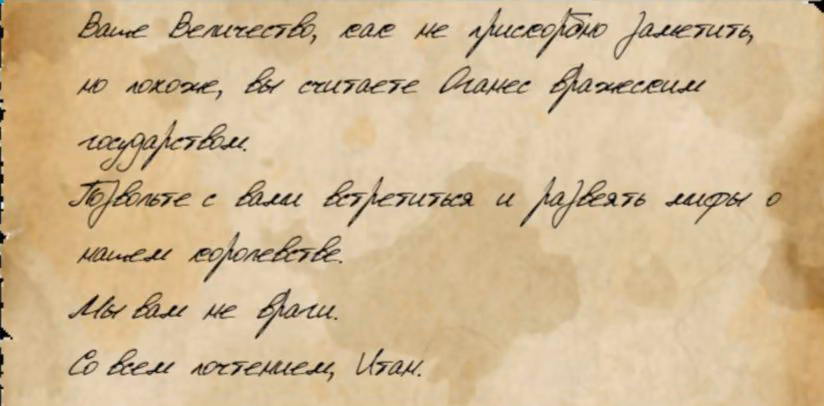 Ваше Величество, как не прискорбно заметить,
но похоже, вы считаете Оганес вражеским
государством.
Позвольте с вами встретиться и развеять мифы о
нашем королевстве.
Мы вам не враги.
Со всем почтением, Итан.